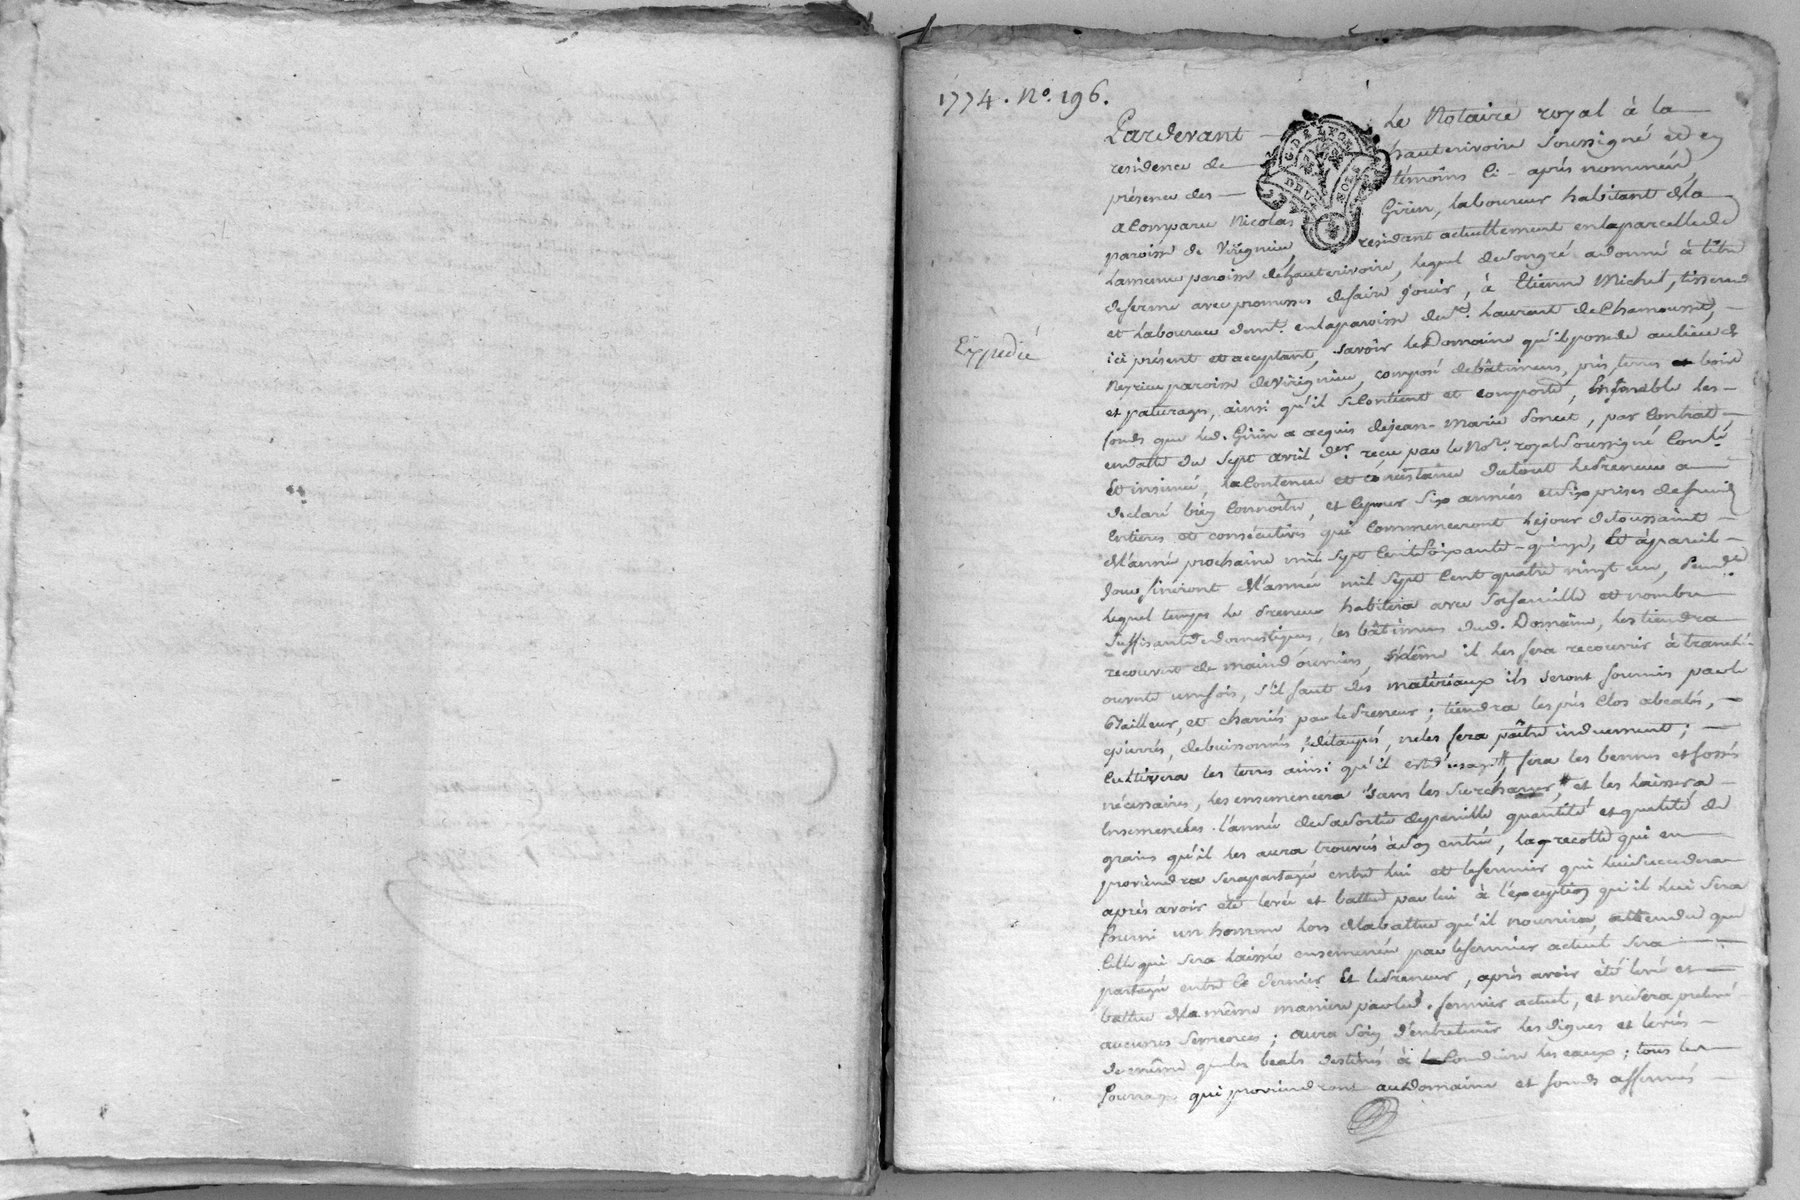 1774. No. 196.
Pardevant Le Notaire royal à la
residence de hauterivoire soussigné et en
présence des témoins ci-après nommés,
a comparu Nicolas Girin, laboureur habitant de la
paroisse de Virignieu, residant actuellement en la parcelle de
la meme paroisse de hauterivoire, lequel de son gré a donné à titre
de ferme avec promesses de faire jouir, à Etienne Michel, tisserand
et laboureur demt. en la paroisse de St. Laurent de Chamousset,
Expedié
ici présent et acceptant, savoir le Domaine qu'il possede au lieu de
paroisse de Virignieu, composé de bâtimens, prés, terres et bois
et paturages, ainsi qu'il se contient et comporte, Ensemble les
fonds que led. Girin a acquis de jean-Marie Poncet, par Contrat
en datte du sept avril der. reçu par le Nre. royal soussigné Conlé
et insinué, la contenue et consistance du tout le preneur a
declaré bien Connoître, et ce pour six années et six prises de fruits
entieres et consécutives qui commenceront le jour de toussaint
de l'année prochaine mil sept cent soixante-quinze, et à pareil
jour finiront de l'année mil sept cent quatre vingt un, pendt
lequel temps le preneur habitera avec sa famille et nombre
suffisant de domestiques, les bâtimens dud. Domaine, les tiendra
recouvert de main d'ouvriers, même il les fera recouvrir à tranché
ouverte une fois, s'il faut des matériaux ils seront fournis par le
Bailleur, et charriés par le preneur; tiendra les prés clos abealés,
épierrés, debuissonnés, détaupés, ne les fera paître induement;
Cultivera les terres ainsi qu'il est d'usage, fera les bennes et fossés
nécessaires, les ensemencera sans les surcharger, et les laissera
Ensemencées l'année de sa sortie de pareille quantité et qualité de
grains qu'il les aura trouvés à son entrée, la recolte qui en
proviendra sera partagée entre lui et le fermier qui lui succedera
après avoir été levée et battue par lui à l'exception qu'il lui sera
fourni un homme lors de la battue qu'il nourrira, attendu que
celle qui sera laissée ensemencée par le fermier actuel sera
partagée entre ce dernier et le preneur, après avoir été levé et
battue de la même maniere par led. fermier actuel, et ne sera prelevé
aucunes semences; aura soin d'entretenir les digues et levées
de même que les beals destinés à Conduire les eaux; tous les
fourrages qui proviendront au domaine et fonds affermés